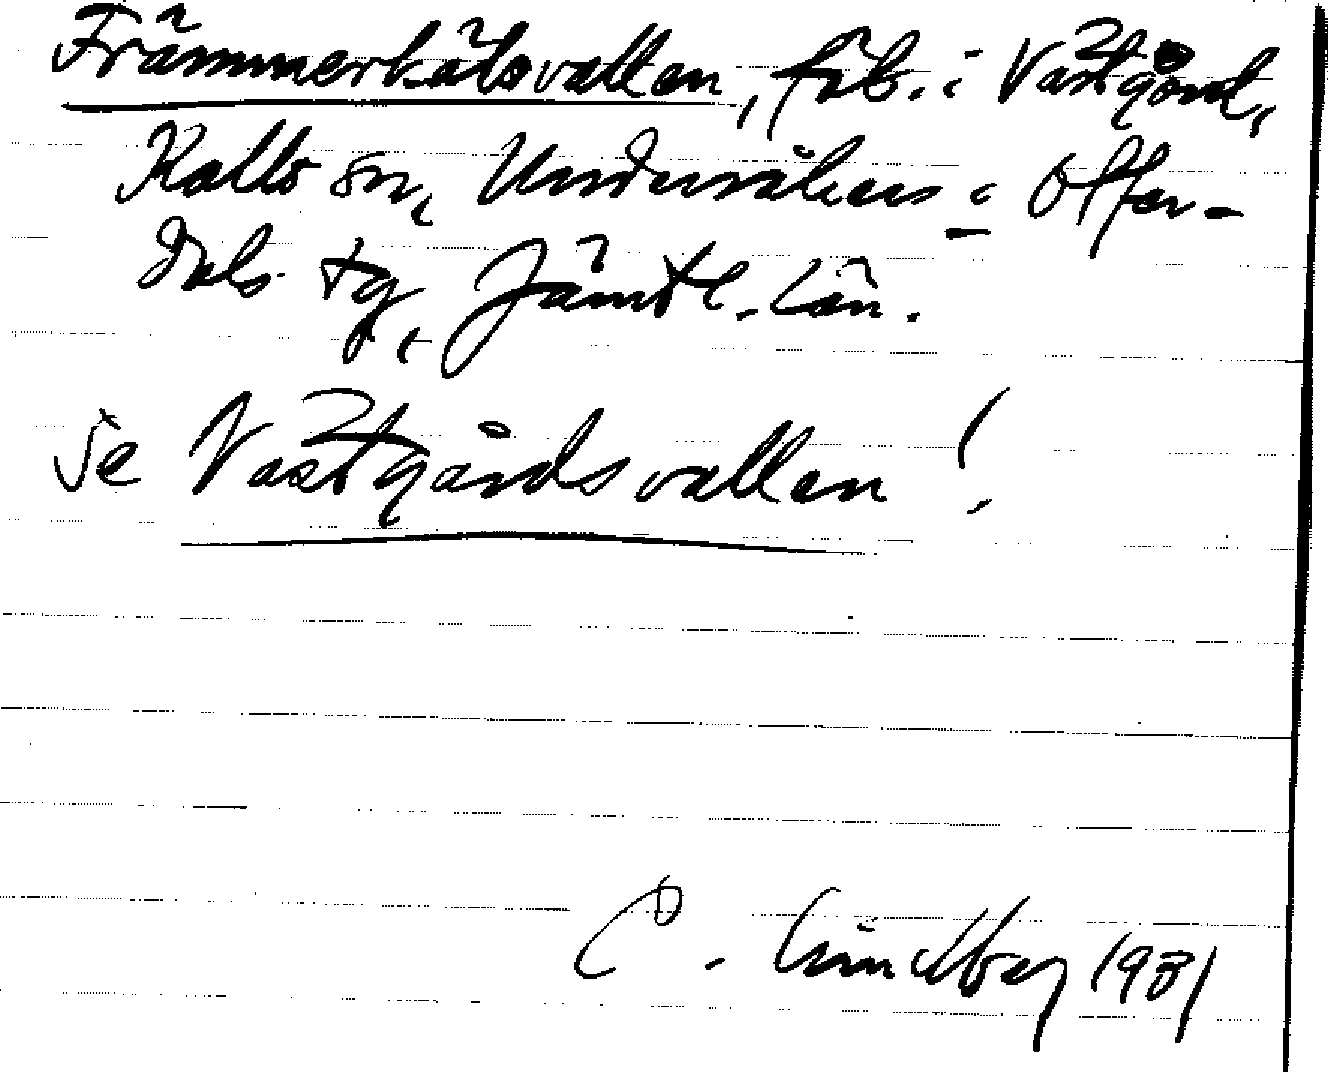 Främmerkälsvallen, fäb. i Västgård,
Kalls sn, Undersåkers o Offer-
dals tg, Jämtl. län.
se Västgårdsvallen!
C. Lindberg 1931